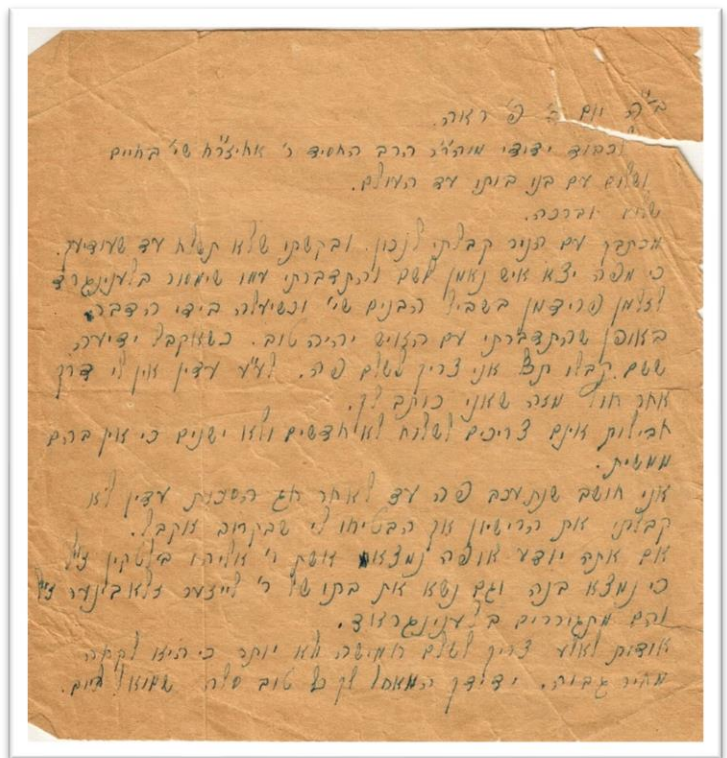 ב"ה יום ה' פ' ראה.
לכבוד ידידי מוהר"ר הרב החסיד ר' אחיעזר שי' בחיים
ושלום עם בני ביתו עד העולם.
שלום וברכה.
מכתבך עם הניר קבלתי לנכון. ובקשתי שלא תשלח עד שאודיעך.
כי מפה יצא איש נאמן לשם והתדברתי עמו שימסור בלענינגרד
לזלמן פרידמן בשביל הבנים שי' וכשיעלה בידי הדבר
באופן שהתדברתי עם האיש יהיה טוב. כשאקבל ידיעה
ששם קבלו אני צריך לשלם פה. לע"ע עדין אין לי דרך
אחר חוץ מזה שאני כותב לך.
חבילות אינם צריכים לשלוח לא חדשים ולא ישנים כי אין בהם
ממשית.
אני חושב שנתעכב פה עד לאחר חג הסכות עדין לא
קבלתי את הרישיון אך הבטיחו לי שבקרוב אקבל.
אם אתה יודע איפה נמצאת אשת ר' אליהו ביליטקין ז"ל
כי נמצא בנה וגם נשא את בתו של ר' לייזער ז"ל
והם מתגוררים בלענינגראד.
אודות צריך לשלם חמישה ולא יותר כי היא לקחה
מחיר גבוה. ידידך המאחל לך כל טוב סלה שמואל חיים.